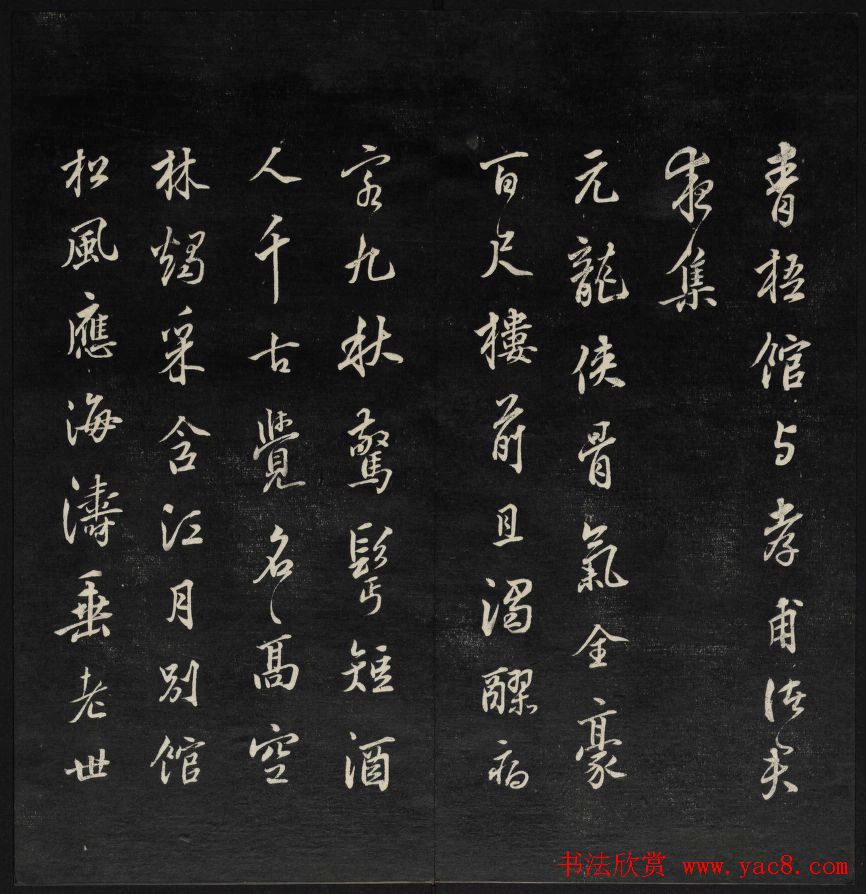 青梧館与孝甫
夜集
元龍俠骨氣全豪
百尺樓前且濁醪病
客九秋驚鬢短酒
人千古覺名高空
林燭采含江月別館
松風應海濤垂老世
书法欣赏 www.yac8.com